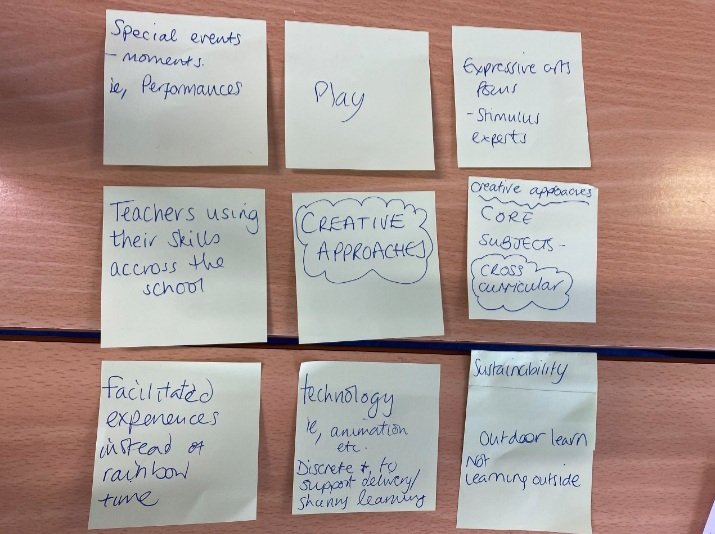 Special events
- moments.
ie, Performances
Play
Expressive arts
focus
- Stimulus
experts
Teachers using
their skills
accross the
school
CREATIVE
APPROACHES
Creative approaches
CORE
SUBJECTS -
CROSS
curricular
facilitated
experiences
instead of
rainbow
time
technology
ie, animation
etc.
Discrete +, to
support delivery/
sharing learning
Sustainability
Outdoor learn
Not
learning outside